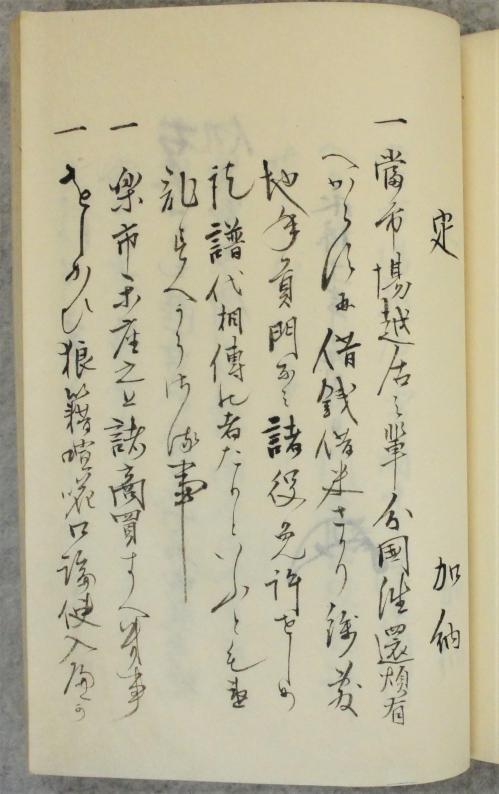 定　加納
一 當市場越居之輩分国往還煩有
へからす并借銭借米さかり銭敷
地年貢門なミ諸役免許せしめ
訖譜代相傳の者たりといふとも違
乱すへからさる事
一 楽市楽座之上諸商買すへき事
一 をしかひ狼藉喧花口論使入へか